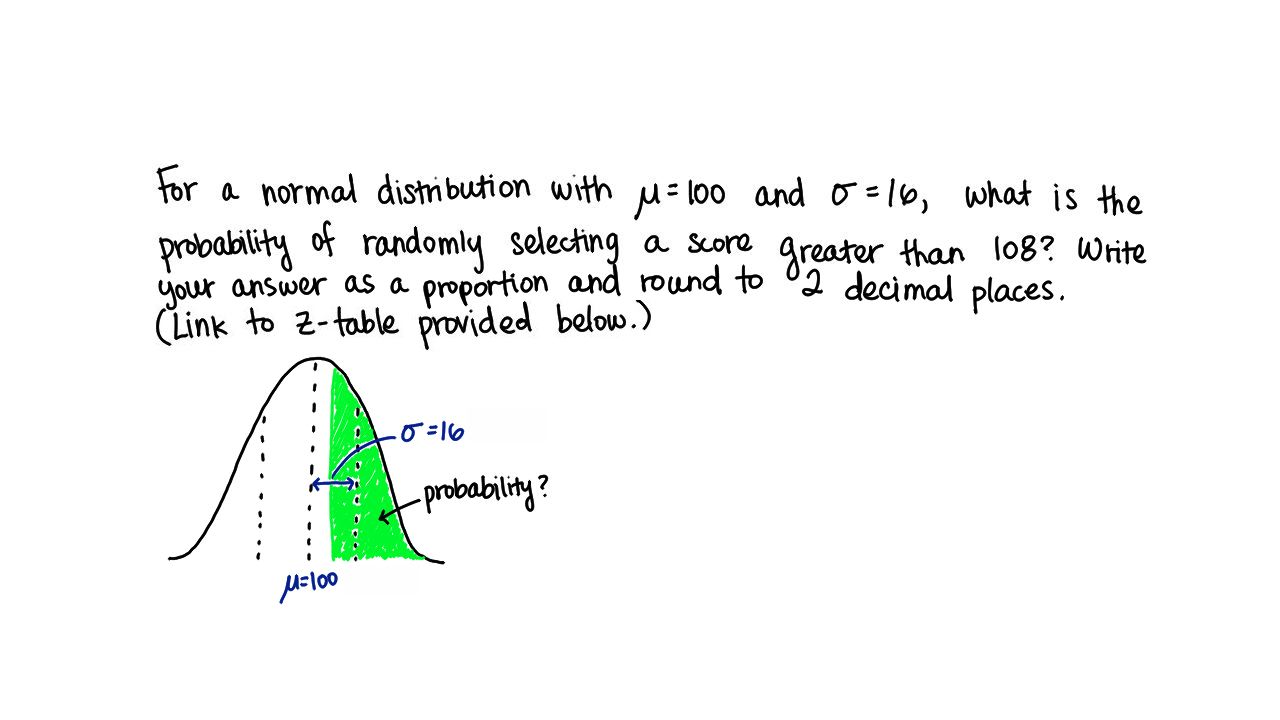 For a normal distribution with μ=100 and σ=16, what is the
probability of randomly selecting a score greater than 108? Write
your answer as a proportion and round to 2 decimal places.
(Link to z-table provided below.)
σ=16
probability?
μ=100